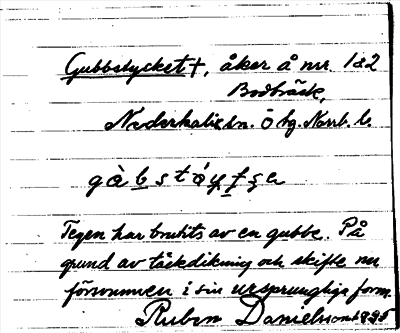 Gubbstycket +, åker å nr. 1 & 2
Bodträsk,
Nederkalix sn. Ö bg. Norrb. l.
Tegen har brutits av en gubbe. På
grund av täckdikning och skifte nu
försvunnen i sin ursprungliga form.
Rubin Danielsson